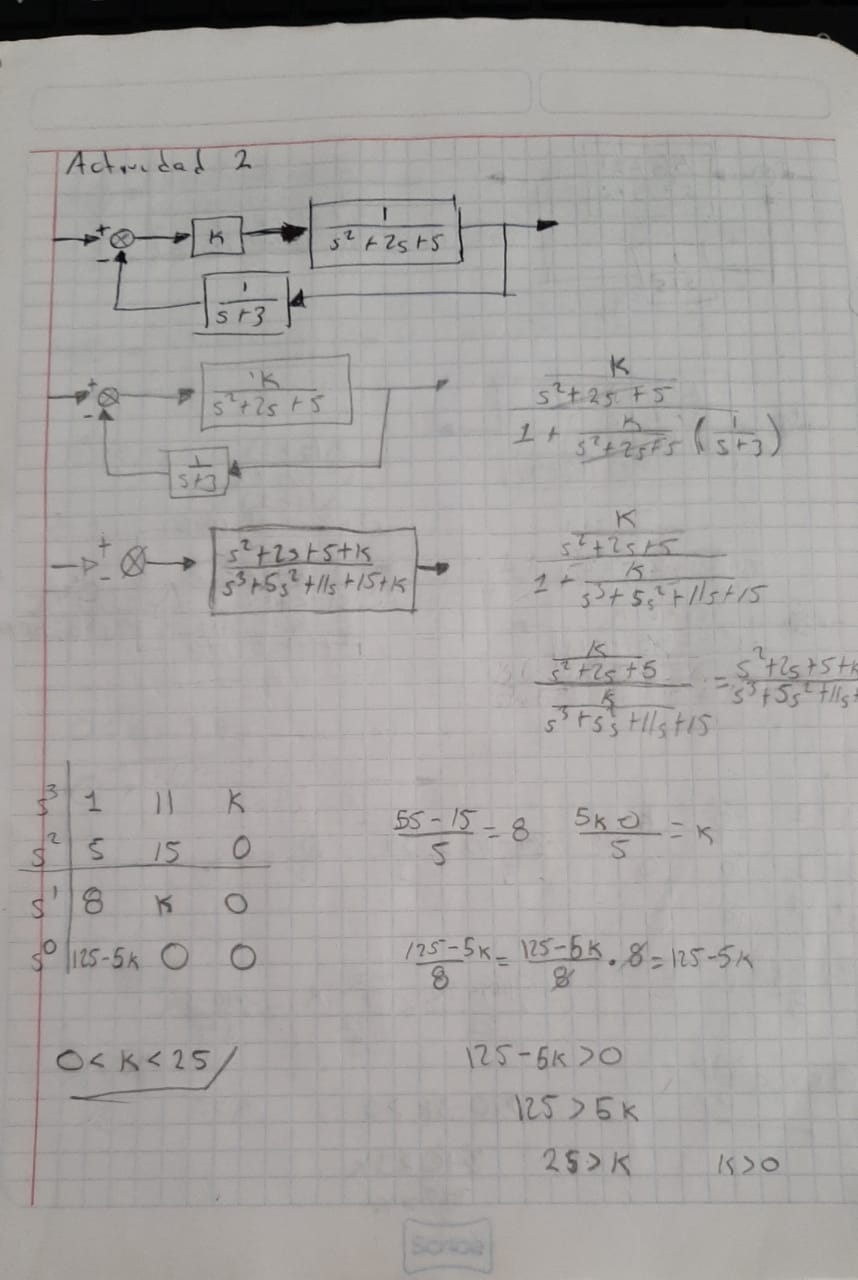 Actividad 2
+ - K 1/(s²+2s+5)
1/(s+3)
+ - K/(s²+2s+5)
1/(s+3)
(K/(s²+2s+5))/(1+K/(s²+2s+5)(1/(s+3)))
+ - (s²+2s+5+K)/(s³+5s²+11s+15+K)
(K/(s²+2s+5))/(1+K/(s³+5s²+11s+15))
(K/(s²+2s+5))/(K/(s³+5s²+11s+15)) = (s²+2s+5+K)/(s³+5s²+11s+
s³ 1 11 K
s² 5 15 0
s¹ 8 K 0
s⁰ 125-5K 0 0
(55-15)/5=8 (5K-0)/5=K
(125-5K)/8=(125-5K)/8·8=125-5K
0<K<25
125-5K>0
125>5K
25>K K>0
Scribe